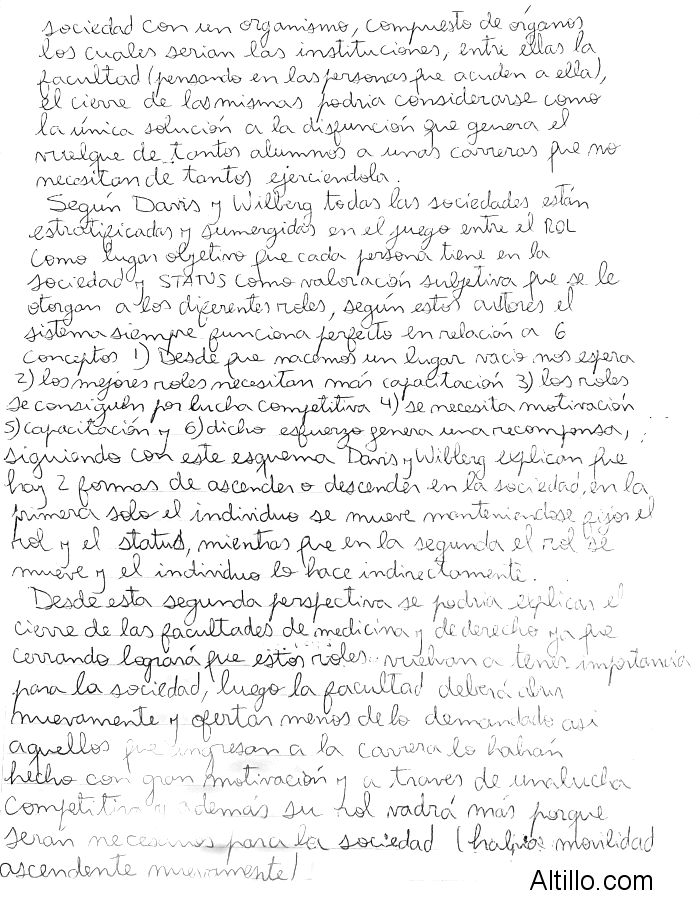 sociedad con un organismo, compuesto de órganos
los cuales serian las instituciones, entre ellas la
facultad (pensando en las personas que acuden a ella),
el cierre de las mismas podria considerarse como
la única solución a la disfunción que genera el
vuelque de tantos alumnos a unas carreras que no
necesitan de tantos ejerciendola.
Según Davis y Wilberg todas las sociedades están
estratificadas y sumergidas en el juego entre el ROL
como lugar objetivo que cada persona tiene en la
sociedad y STATUS como valoración subjetiva que se le
otorgan a los diferentes roles, según estos autores el
sistema siempre funciona perfecto en relación a 6
conceptos 1) Desde que nacemos un lugar vacio nos espera
2) los mejores roles necesitan más capacitación 3) los roles
se consiguen por lucha competitiva 4) se necesita motivación
5) capacitación y 6) dicho esfuerzo genera una recompensa,
siguiendo con este esquema Davis y Wilberg explican que
hay 2 formas de ascender o descender en la sociedad, en la
primera solo el individuo se mueve manteniendose fijos el
rol y el status, mientras que en la segunda el rol se
mueve y el individuo lo hace indirectamente.
Desde esta segunda perspectiva se podria explicar el
cierre de las facultades de medicina y de derecho ya que
cerrando logrará que estos roles vuelvan a tener importancia
para la sociedad, luego la facultad deberá abrir
nuevamente y ofertar menos de lo demandado asi
aquellos que ingresan a la carrera lo habán
hecho con gran motivación y a traves de una lucha
competitiva y además su rol vadrá más porque
seran necesarios para la sociedad (habría movilidad
ascendente nuevamente)
Altillo.com